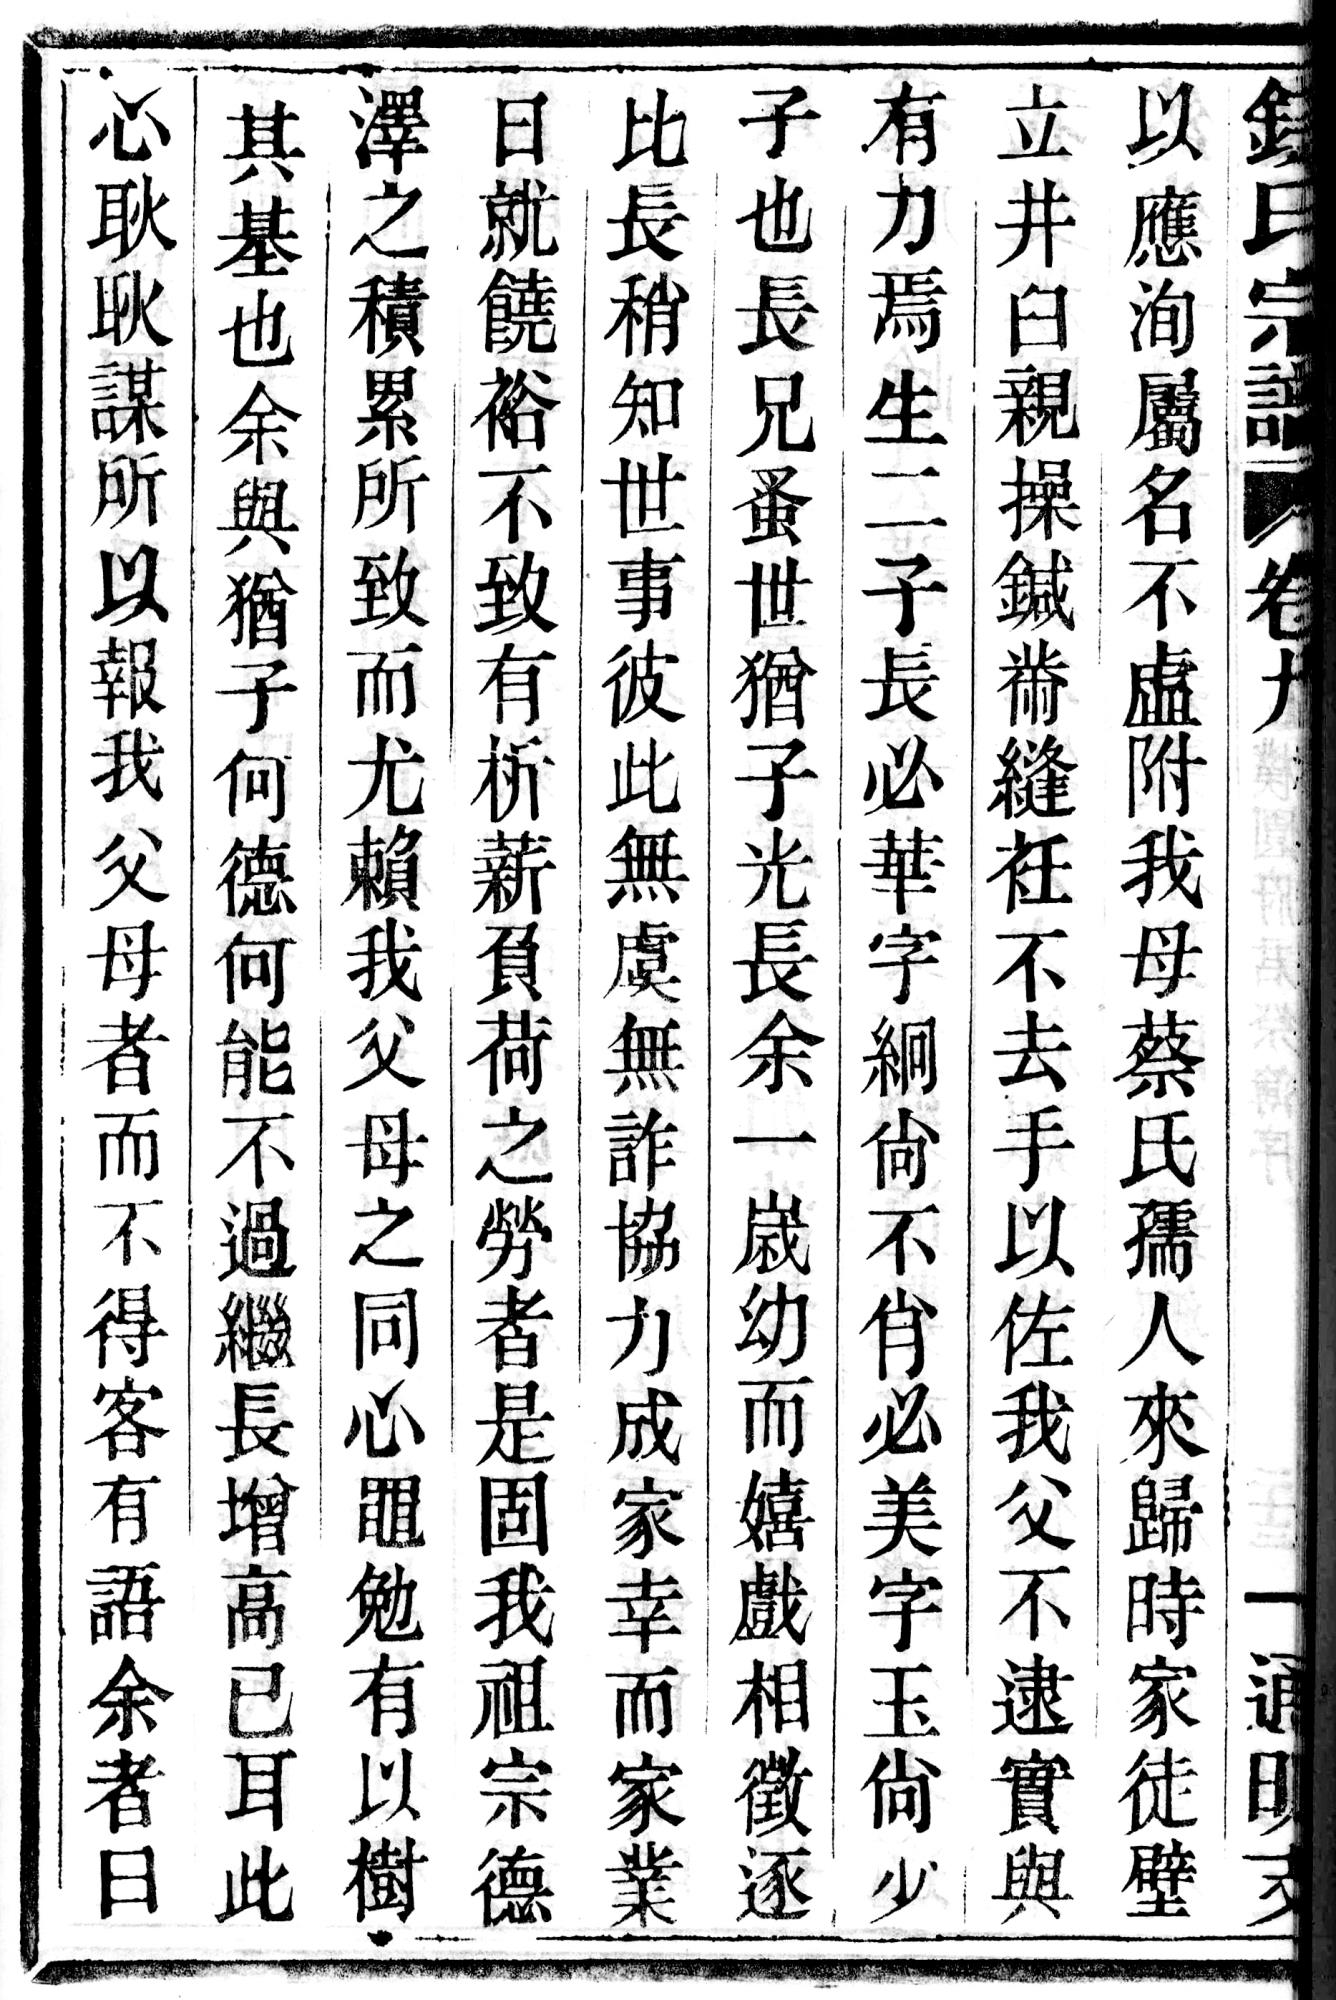 錢氏宗譜 卷九 一 通明支
以應洵屬名不虛附我母蔡氏孺人來歸時家徒壁
立井臼親操鍼黹縫衽不去手以佐我父不逮實與
有力焉生二子長必華字絅尙不肖必美字玉尙少
子也長兄蚤世猶子光長余一歲幼而嬉戲相徵逐
比長稍知世事彼此無虞無詐協力成家幸而家業
日就饒裕不致有析薪負荷之勞者是固我祖宗德
澤之積累所致而尤賴我父母之同心黽勉有以樹
其基也余與猶子何德何能不過繼長增高已耳此
心耿耿謀所以報我父母者而不得客有語余者曰